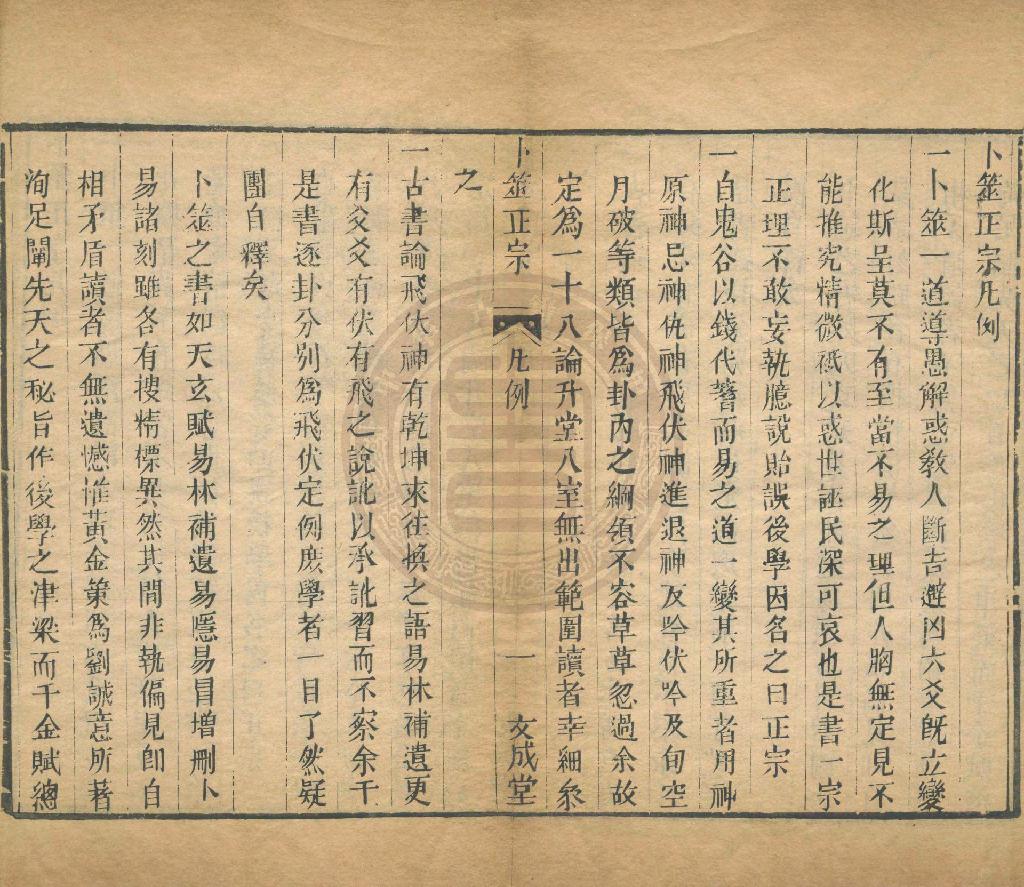 卜筮正宗凡例
一卜筮一道導愚解惑敎人斷吉避凶六爻旣立變
化斯呈莫不有至當不易之理但人胸無定見不
能推究精微祗以惑世誣民深可哀也是書一宗
正理不敢妄執臆説貽誤後學因名之曰正宗
一自鬼谷以錢代蓍而易之道一變其所重者用神
原神忌神仇神飛伏神進退神反吟伏吟及旬空
月破等類皆爲卦內之綱領不容草草忽過余故
定爲一十八論升堂入室無出範圍讀者幸細叅
卜筮正宗
凡例
一
文成堂
之
一古書論飛伏神有乾坤來往換之語易林補遺更
有爻爻有伏有飛之說訛以承訛習而不察余于
是書逐卦分别爲飛伏定例庶學者一目了然疑
團自釋矣
卜筮之書如天玄賦易林補遺易隱易冒增刪卜
易諸刻雖各有搜精標異然其間非執偏見卽自
相矛盾讀者不無遺憾惟黃金策爲劉誠意所著
洵足闡先天之秘旨作後學之津梁而千金賦總